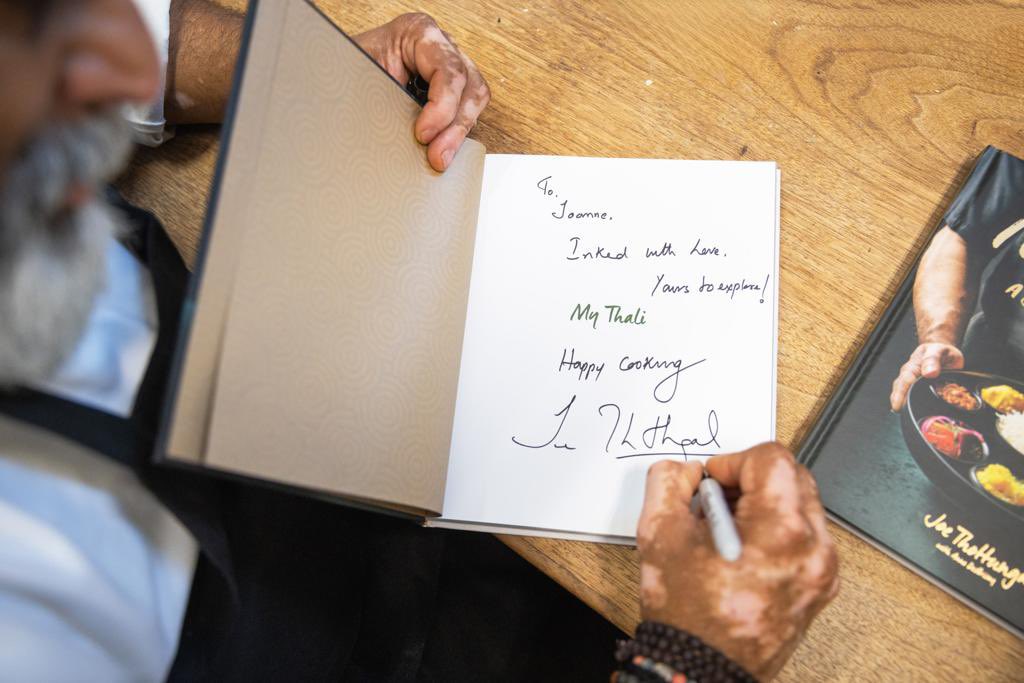 To,
Joanne,
Inked with Love.
Yours to explore!
My Thali
Happy Cooking
Joe Thottungal
A
Joe Thottung
with Anne